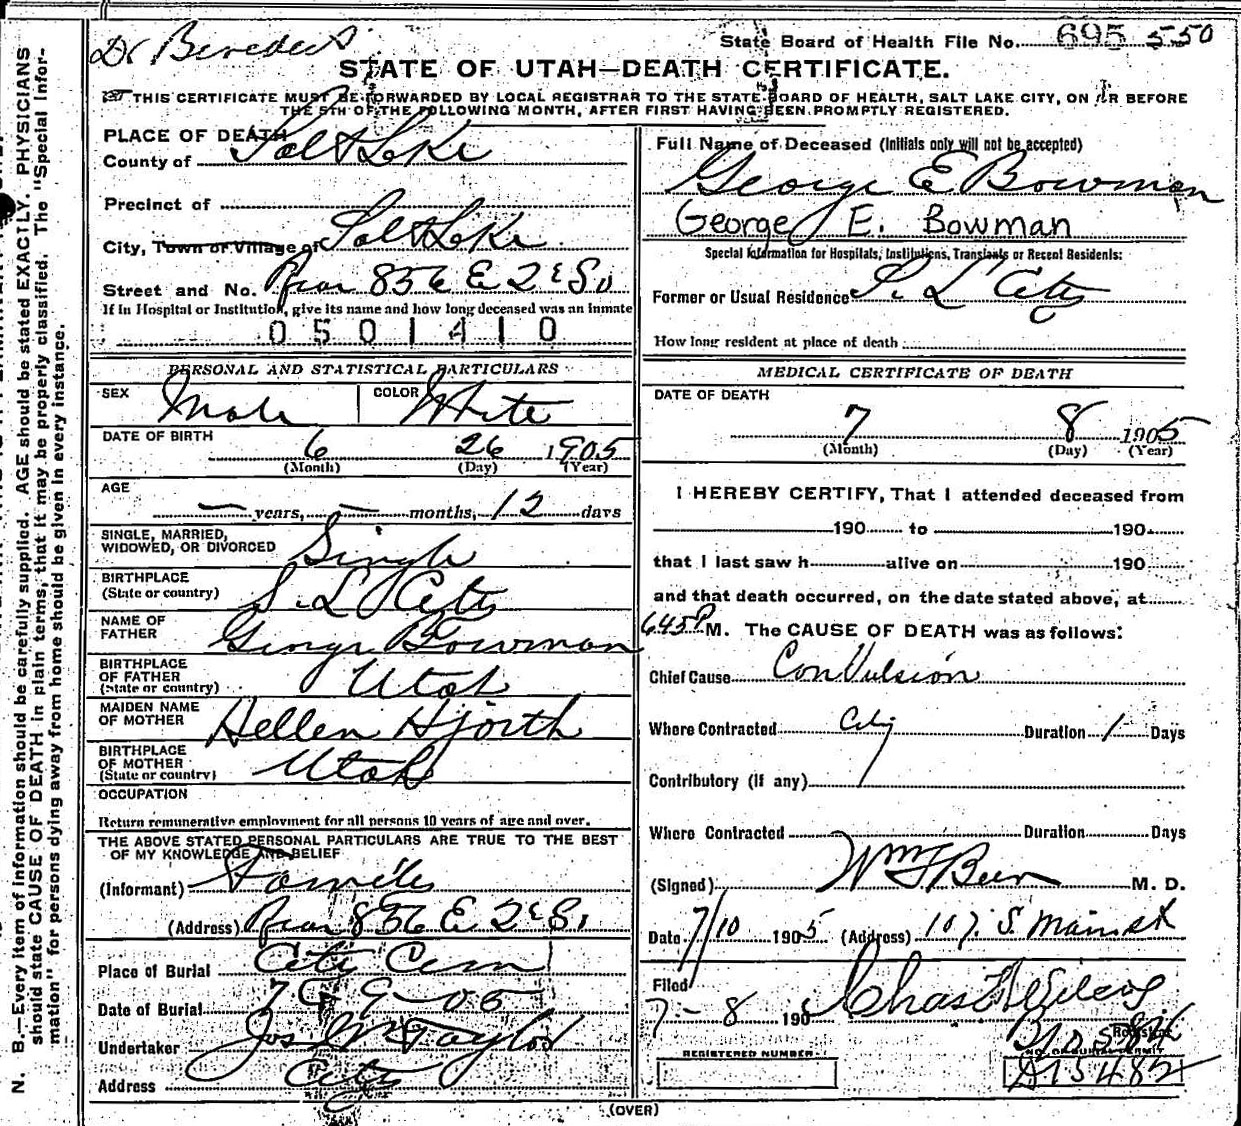 Dr Benedict
State Board of Health File No. 695 550
STATE OF UTAH—DEATH CERTIFICATE.
THIS CERTIFICATE MUST BE FORWARDED BY LOCAL REGISTRAR TO THE STATE BOARD OF HEALTH, SALT LAKE CITY, ON OR BEFORE
THE 5TH OF THE FOLLOWING MONTH, AFTER FIRST HAVING BEEN PROMPTLY REGISTERED.
N. B.—Every item of information should be carefully supplied. AGE should be stated EXACTLY. PHYSICIANS
should state CAUSE OF DEATH in plain terms, that it may be properly classified. The "Special Infor-
mation" for persons dying away from home should be given in every instance.
PLACE OF DEATH
County of Salt Lake
Precinct of
City, Town or Village of Salt Lake
Street and No. Rear 856 E 2d So
If in Hospital or Institution, give its name and how long deceased was an inmate
0501410
PERSONAL AND STATISTICAL PARTICULARS
SEX Male COLOR White
DATE OF BIRTH 6 26 1905
(Month) (Day) (Year)
AGE
— years, — months, 12 days
SINGLE, MARRIED,
WIDOWED, OR DIVORCED Single
BIRTHPLACE
(State or country) S. L City
NAME OF
FATHER George Bowman
BIRTHPLACE
OF FATHER
(State or country) Utah
MAIDEN NAME
OF MOTHER Hellen Hjorth
BIRTHPLACE
OF MOTHER
(State or country) Utah
OCCUPATION
Return remunerative employment for all persons 10 years of age and over.
THE ABOVE STATED PERSONAL PARTICULARS ARE TRUE TO THE BEST
OF MY KNOWLEDGE AND BELIEF
(Informant) Family
(Address) Rear 856 E 2d So
Place of Burial City Cem
Date of Burial 7-9-05
Undertaker Jos Wm Taylor
Address City
Full Name of Deceased (Initials only will not be accepted)
George E Bowman
George E. Bowman
Special Information for Hospitals, Institutions, Transients or Recent Residents:
Former or Usual Residence S. L City
How long resident at place of death
MEDICAL CERTIFICATE OF DEATH
DATE OF DEATH
7 8 1905
(Month) (Day) (Year)
I HEREBY CERTIFY, That I attended deceased from
190 to 190
that I last saw h alive on 190
and that death occurred, on the date stated above, at
645 P M. The CAUSE OF DEATH was as follows:
Chief Cause Convulsion
Where Contracted City Duration 1 Days
Contributory (if any)
Where Contracted Duration Days
(Signed) Wm F Beer M. D.
Date 7/10 1905 (Address) 107. S. Main st
Filed
7-8 190 Chas
Registrar
B10584
REGISTERED NUMBER NO. OF BURIAL PERMIT
A15482
(OVER)